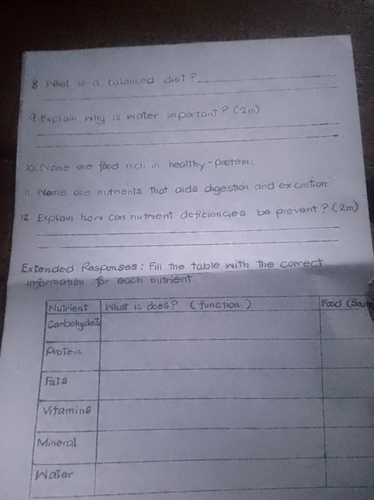 8. What is a balanced diet?
9. Explain why is water important? (2m)
10. Name one food rich in healthy-protein.
11. Name one nutrients that aids digestion and excretion.
12. Explain how can nutrient deficiencies be prevent? (2m)
Extended Responses: Fill the table with the correct
information for each nutrient.
Nutrient What is does? (function) Food (Sou
Carbohydrate
Protein
Fats
Vitamins
Mineral
Water